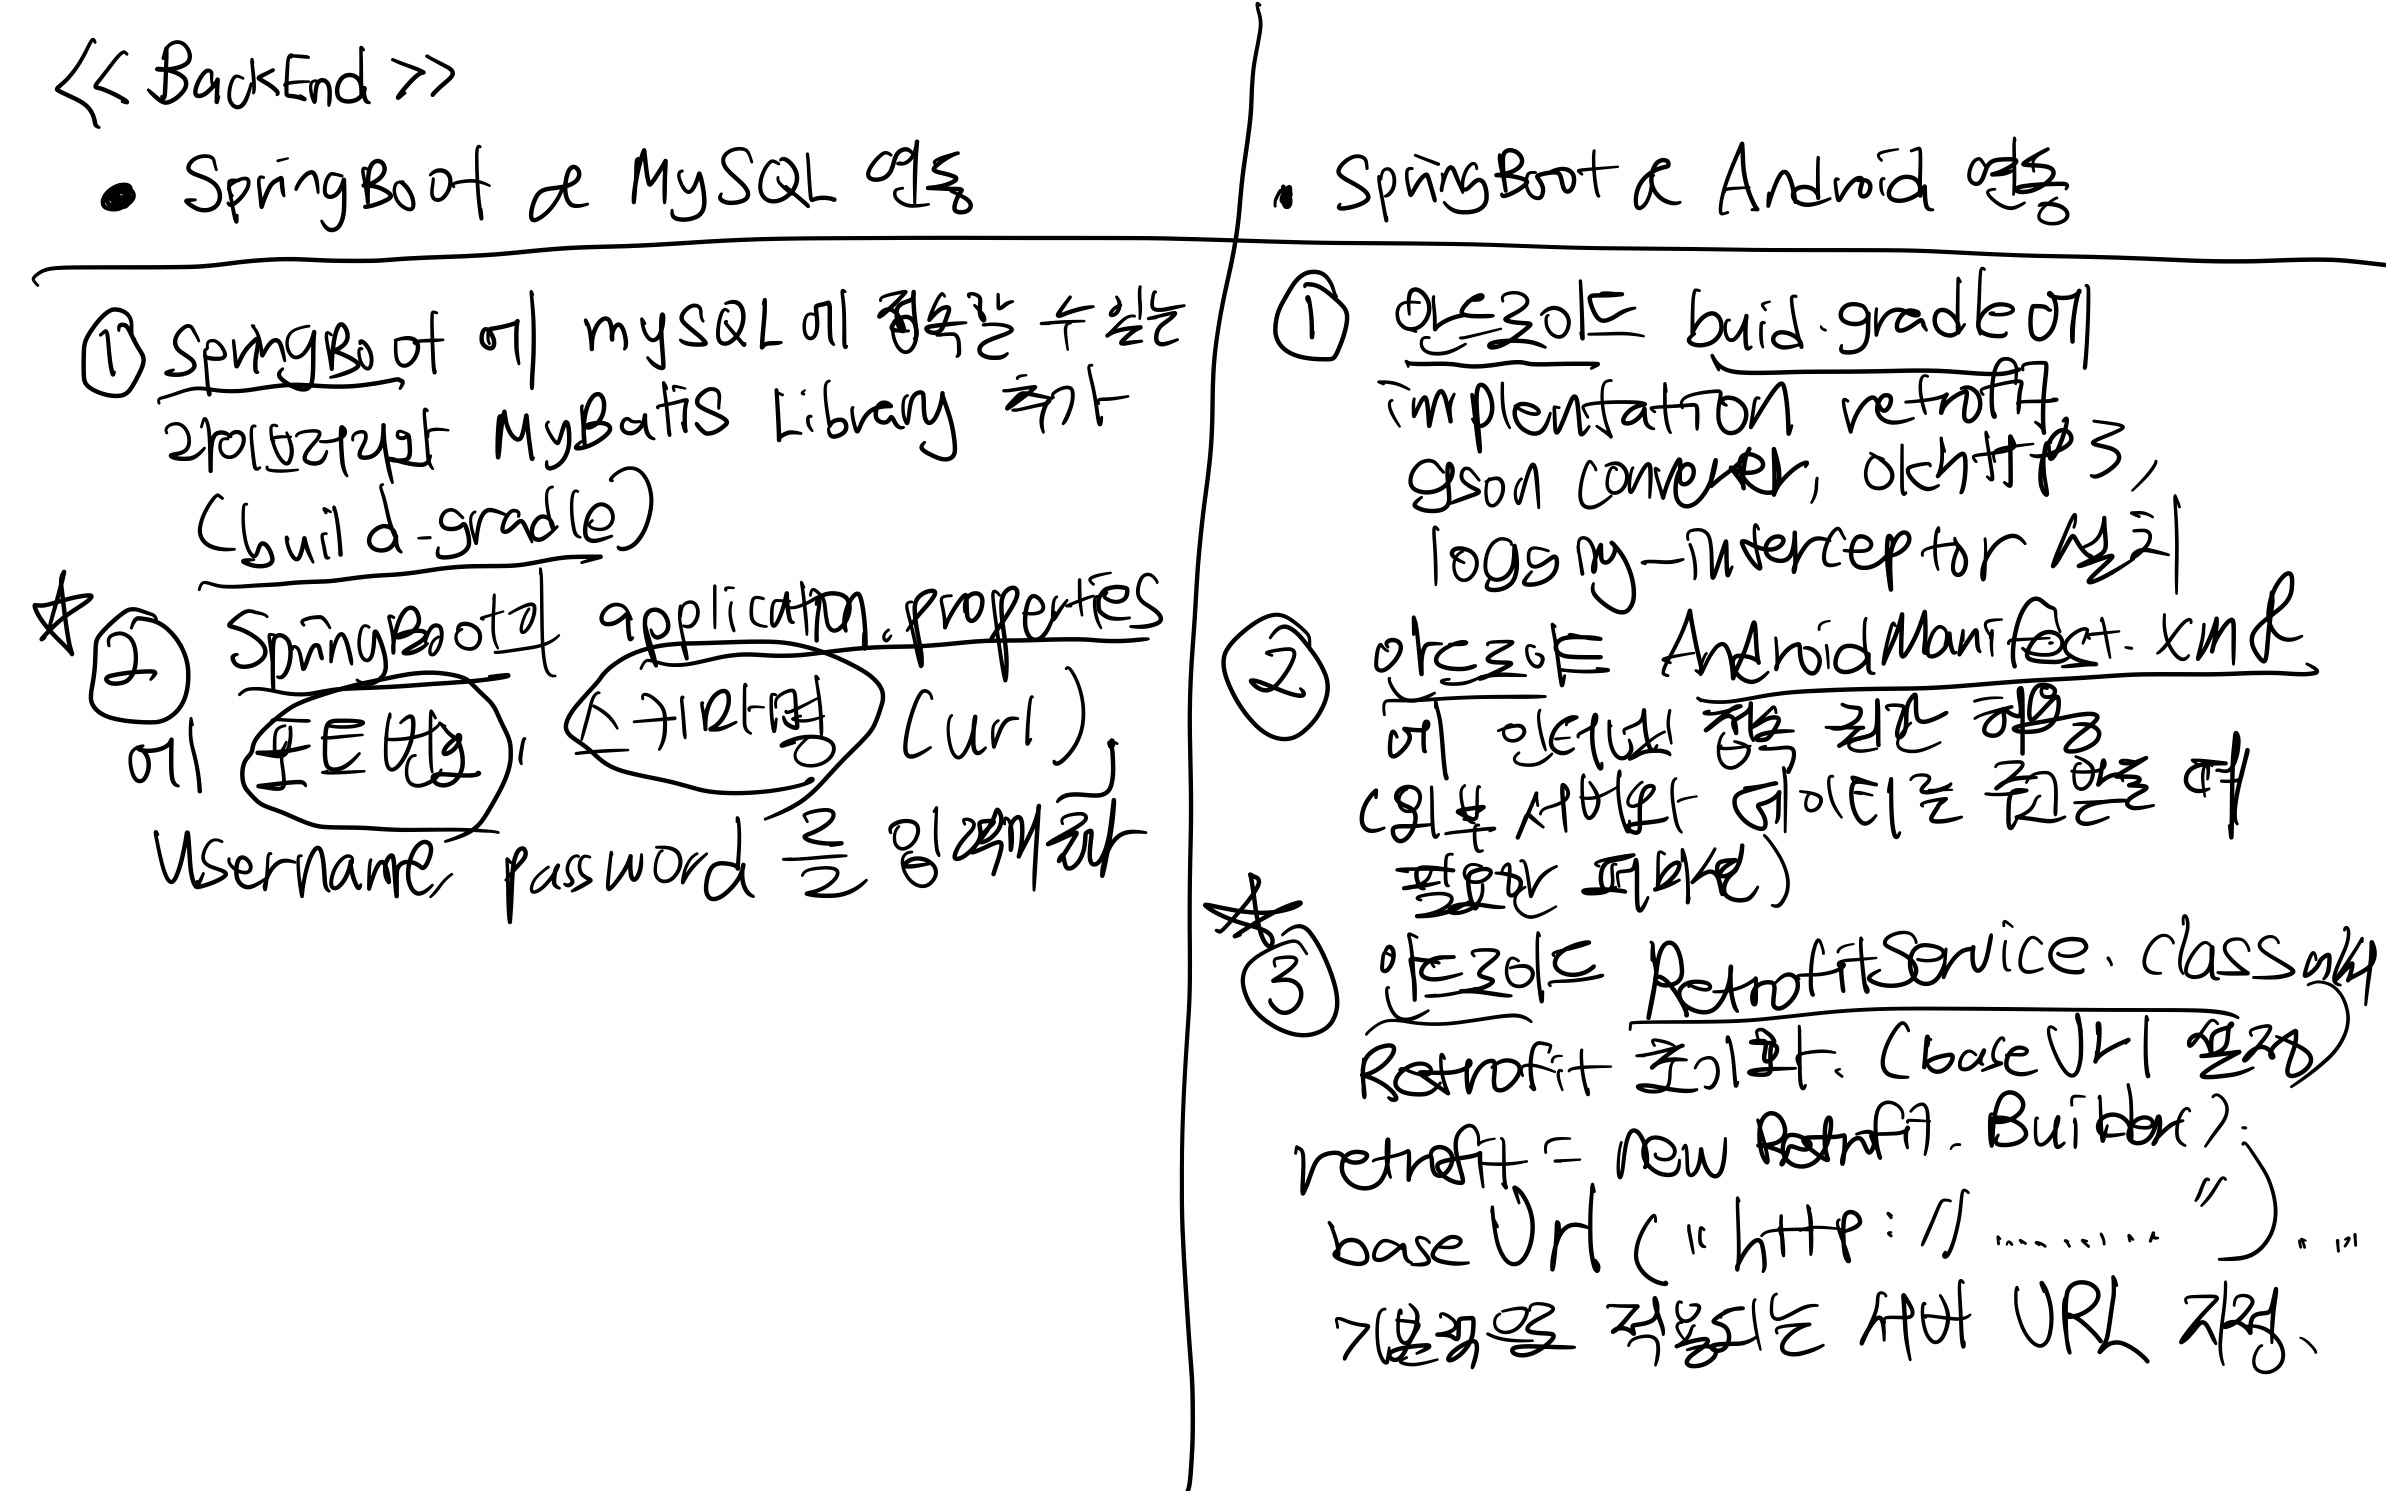 <<BackEnd>>
• SpringBoot & MySQL 연동
① SpringBoot에 mySQL에 접속할 수 있는
라이브러리 MyBatis Library 추가
(build.gradle)
☆ ② SpringBoot의 application.properties
에 포트번호, 스키마명 (url),
username, password 를
• SpringBoot & Android 연동
① 안드로이드 build.gradle에
implementation retrofit
gson converter, okhttp3,
logging-interceptor 설치
② 안드로이드 AndroidManifest.xml
에 인터넷 통신 권한
서버와 데이터를
☆ ③ 안드로이드 RetrofitService.class에서
Retrofit 초기화. (baseUrl 포함)
retrofit = new Retrofit.Builder().
baseUrl("http://.........")....
기본적으로 적용되는 서버 URL 지정.